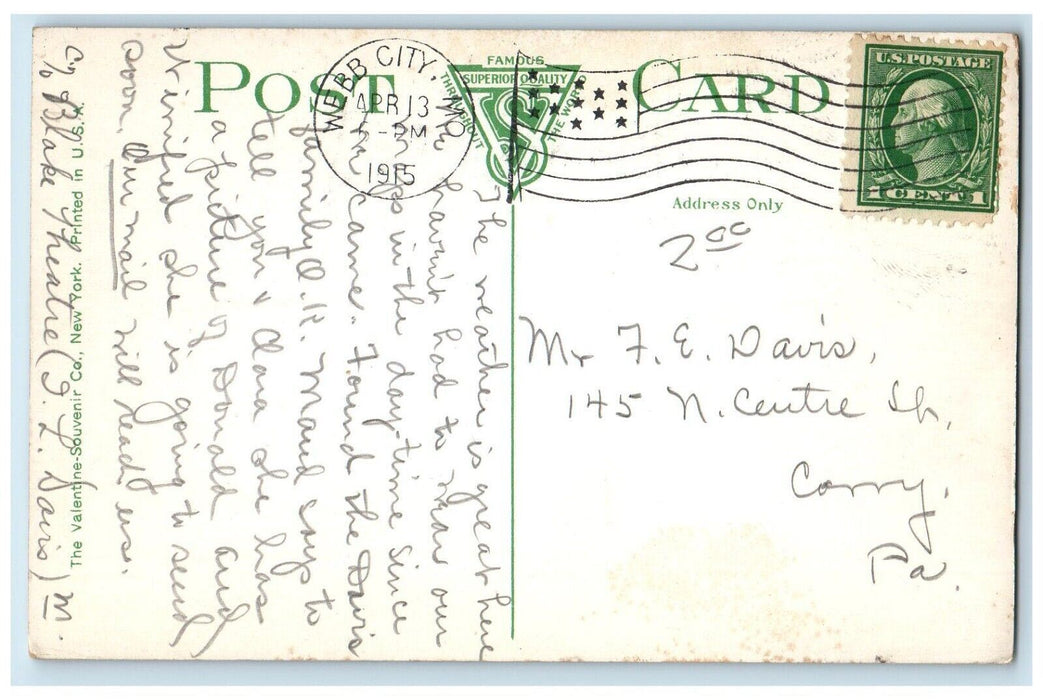 POST CARD
FAMOUS
SUPERIOR QUALITY
THROUGHOUT
THE WORLD
WEBB CITY, MO.
APR 13
PM
1915
U.S. POSTAGE
1 CENT 1
Address Only
2 00
Mr F. E. Davis,
145 N. Centre St.,
Corry,
Pa.
The weather is great here
havin't had to wear our
in the day-time since
we came. Found the Davis
family O.K. Maud says to
tell you & Clara she has
a picture of Donald and
Winifred she is going to send
soon. Our mail will reach us.
c/o Blake Theatre (F. L. Davis) M.
The Valentine-Souvenir Co., New York. Printed in U.S.A.